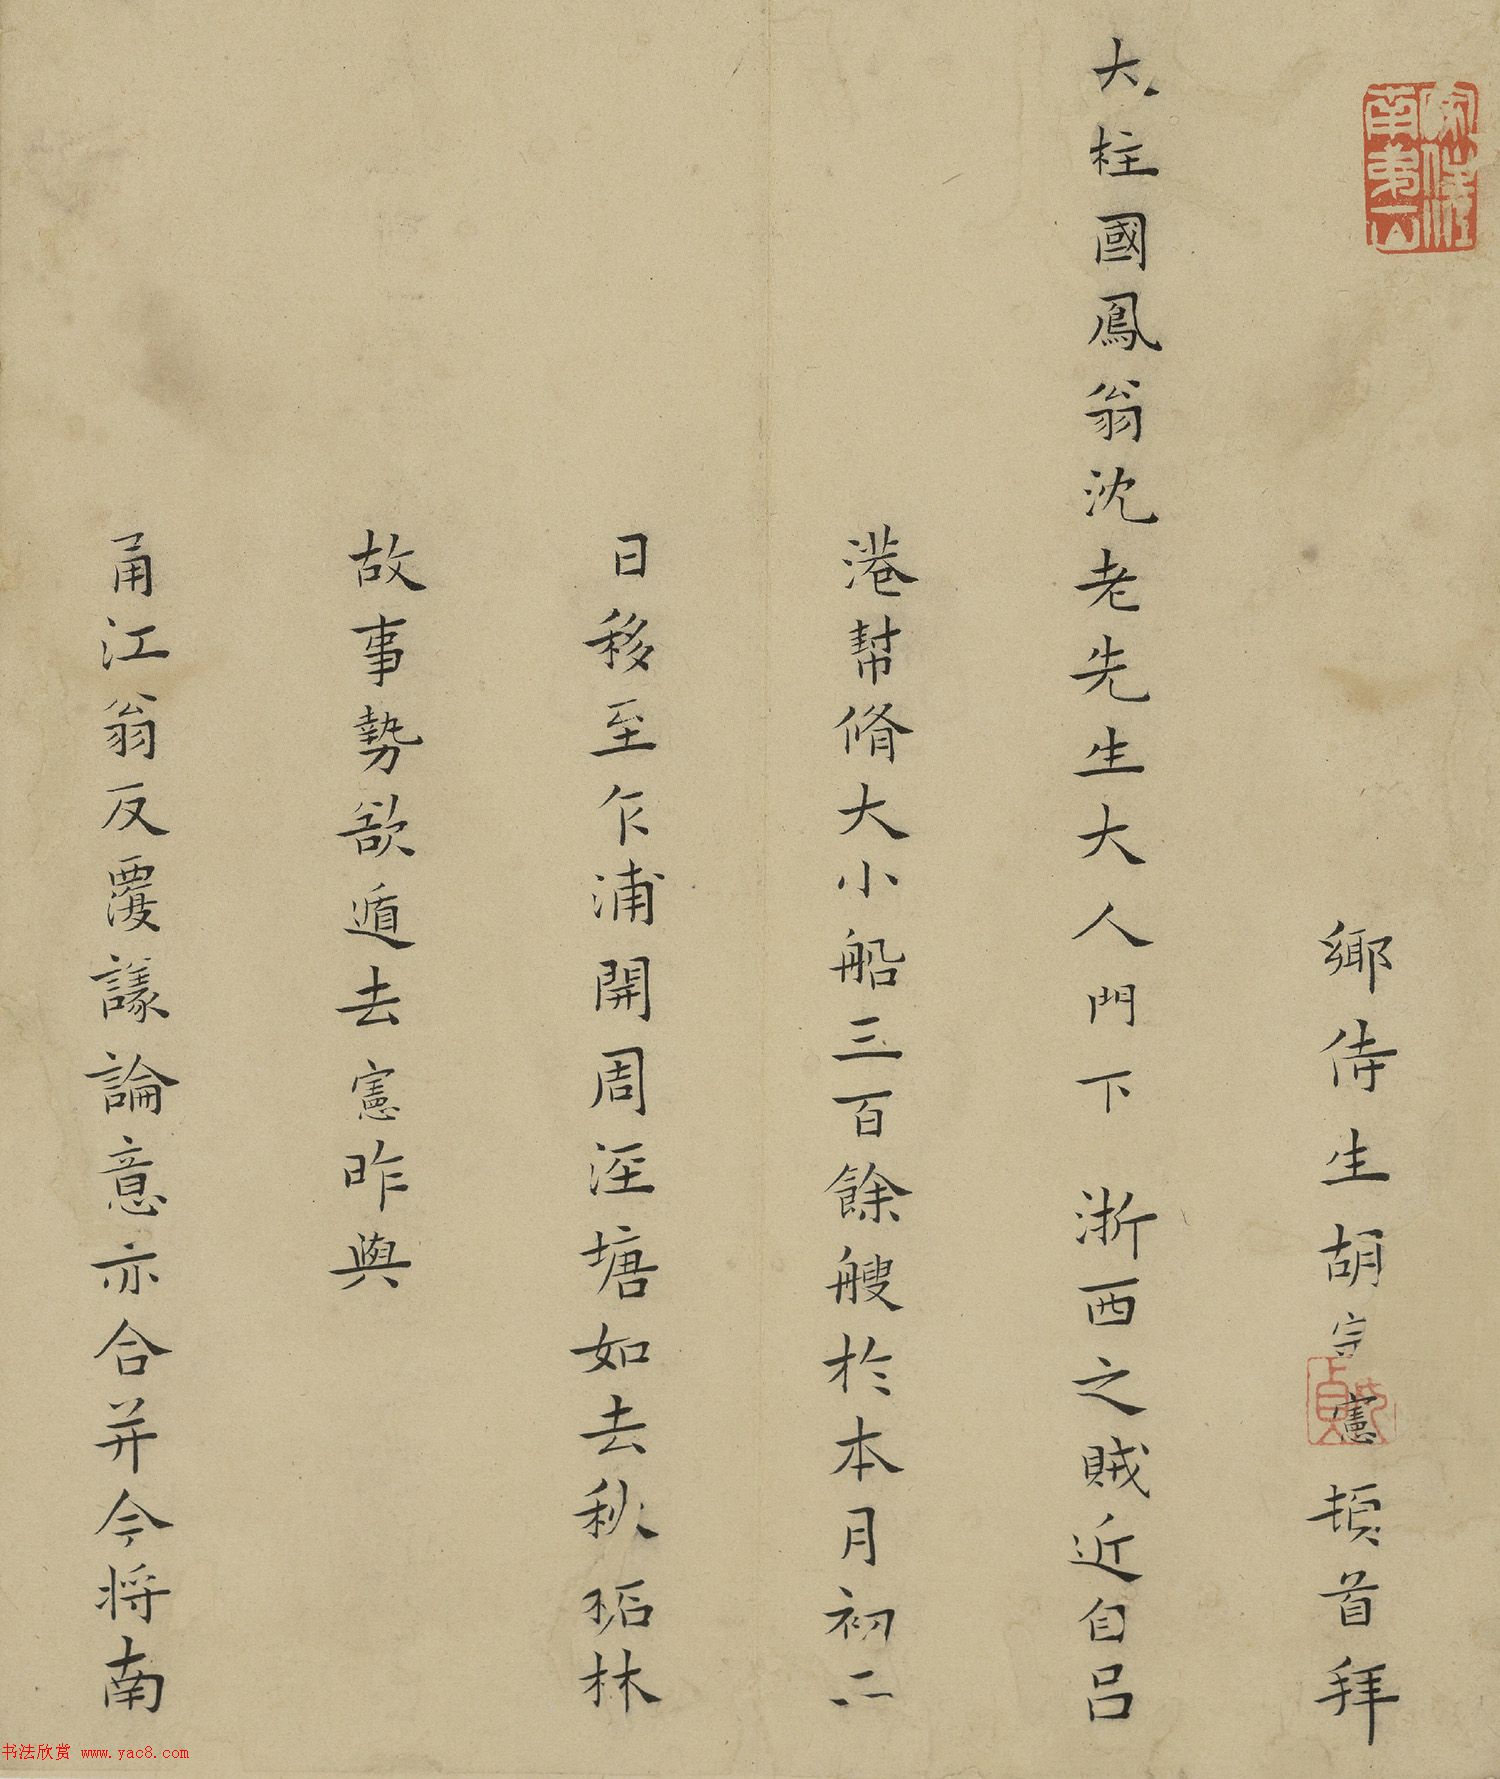 鄉侍生胡宗憲頓首拜
大柱國鳳翁沈老先生大人門下 浙西之賊近自呂
港幫脩大小船三百餘艘於本月初二
日移至乍浦開周涇塘如去秋柘林
故事勢欲遁去憲昨與
甬江翁反覆議論意亦合并今將南
书法欣赏 www.yac8.com